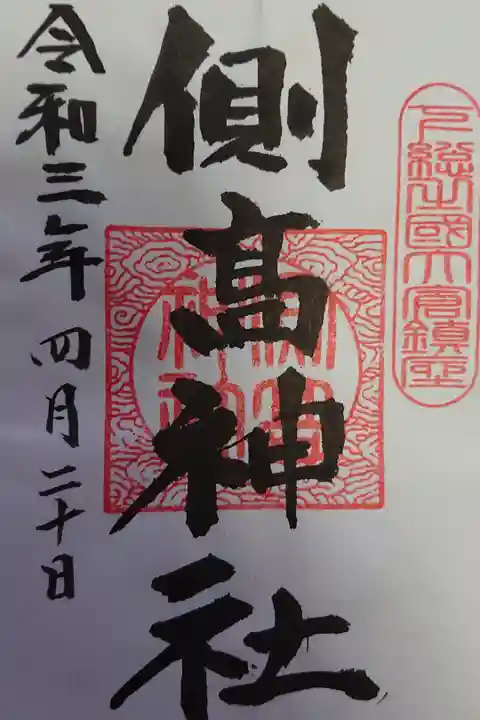 下總之國大倉鎮座
側高神社
側高神社
令和三年四月二十日